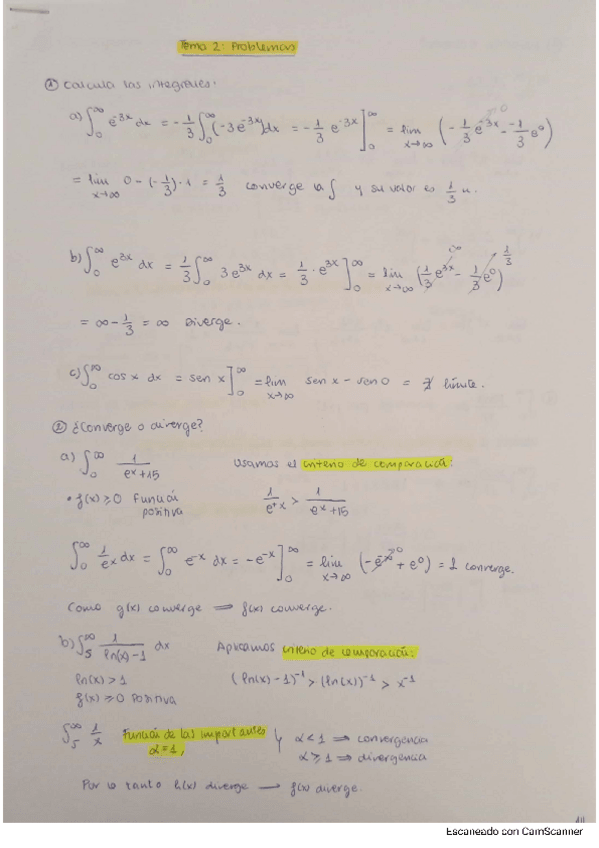 Tema 2: Problemas
① Calcula las integrales:
a) ∫₀^∞ e^(-3x) dx = -1/3 ∫₀^∞ (-3e^(-3x))dx = -1/3 e^(-3x)]₀^∞ = lim x→∞ (-1/3 e^(-3x) - -1/3 e⁰) → 0
= lim x→∞ 0 - (-1/3)·1 = 1/3 converge la ∫ y su valor es 1/3 u.
b) ∫₀^∞ e^(3x) dx = 1/3 ∫₀^∞ 3e^(3x) dx = 1/3 · e^(3x)]₀^∞ = lim x→∞ (1/3 e^(3x) - 1/3 e⁰) ∞ 1/3
= ∞ - 1/3 = ∞ Diverge.
c) ∫₀^∞ cos x dx = sen x]₀^∞ = lim x→∞ sen x - sen 0 = ∄ límite.
② ¿Converge o diverge?
a) ∫₀^∞ 1/(e^x+15) Usamos el criterio de comparación:
• f(x) ≥ 0 Función positiva 1/e^x > 1/(e^x+15)
∫₀^∞ 1/e^x dx = ∫₀^∞ e^(-x) dx = -e^(-x)]₀^∞ = lim x→∞ (-e^(-x) + e⁰) = 1 converge.
Como g(x) converge ⟹ f(x) converge.
b) ∫₅^∞ 1/(ln(x)-1) dx Aplicamos criterio de comparación:
ln(x) > 1 (ln(x)-1)⁻¹ > (ln(x))⁻¹ > x⁻¹
f(x) ≥ 0 Positiva
∫₅^∞ 1/x Función de las importantes α = 1, y { α < 1 ⟹ convergencia
α ≥ 1 ⟹ divergencia
Por lo tanto h(x) diverge → f(x) diverge.
Escaneado con CamScanner